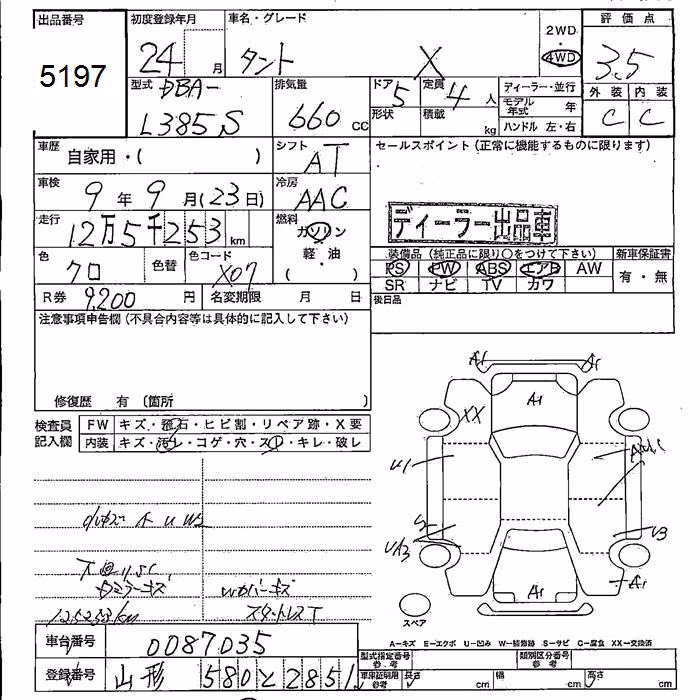 出品番号 初度登録年月 車名・グレード 2WD 評価点
5197 24 月 タント X 4WD 3.5
型式 DBA- 排気量 ドア 5 定員 4 人 ディーラー・並行 外装 内装
L385S 660 cc 形状 積載 kg モデル年式 年 C C
ハンドル 左・右
車歴 自家用・( ) シフト AT セールスポイント (正常に機能するものに限ります)
車検 9 年 9 月 (23 日) 冷房 AAC
走行 12万5千253 km 燃料 ガソリン ディーラー出品車
色 クロ 色替 色コード X07 軽・油 ( )
装備品 (純正品に限り○をつけて下さい) 新車保証書
PS PW ABS エアB AW 有・無
SR ナビ TV カワ
R券 9,200 円 名変期限 月 日 後日品
注意事項申告欄 (不具合内容等は具体的に記入して下さい)
修復歴 有 (箇所 )
検査員記入欄 FW キズ・飛石・ヒビ割・リペア跡・X要
内装 キズ・汚レ・コゲ・穴・スレ・キレ・破レ
A1 A1
A1
XX
U1
S U3
A1 A1
ミラーキズ
125253km スタッドレスT
スペア
A-キズ E-エクボ U-凹み W-補修跡 S-サビ C-腐食 XX-交換済
車台番号 0087035
型式指定番号 参考 類別区分番号 参考
登録番号 山形 580 と 2851
車庫証明用 参考 長さ cm 幅 cm 高さ cm